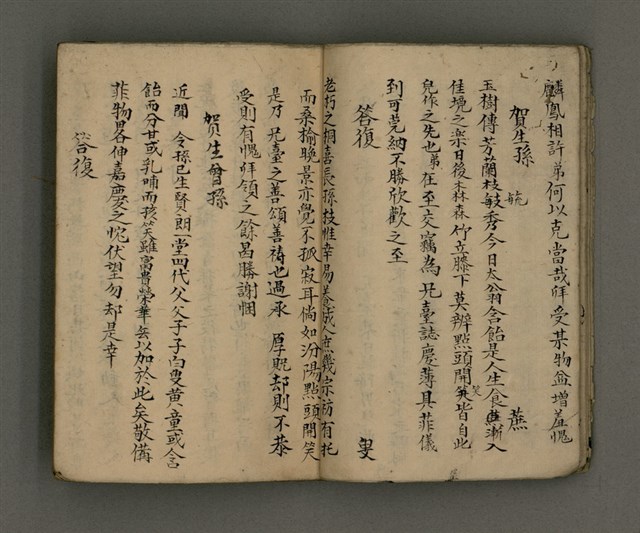 麟鳳相許弟何以克當哉拜受某物益增羞愧
賀生孫
玉樹傳芳蘭枝毓秀今日太翁含飴是人生食蔗漸入
佳境之樂日後森森竹立滕下莫辨點頭開笑皆自此
兒作之先也弟在至交竊為兄臺誌慶薄具菲儀
到可莞納不勝欣歡之至
答復
老朽之桐喜長孫枝惟幸易養成人庶幾宗祊有托
而桑榆晚景亦覺不孤寂耳倘如汾陽點頭開笑
是乃兄臺之善頌善祷也過承 厚貺却則不恭
受則有愧拜領之餘曷勝謝悃
賀生曾孫
近聞 令孫已生賢郎一堂四代父父子子白叟黃童或含
飴而分甘或乳哺而孩笑雖富貴榮華無以加於此矣敬備
菲物畧伸嘉慶之忱伏望勿却是幸
答復